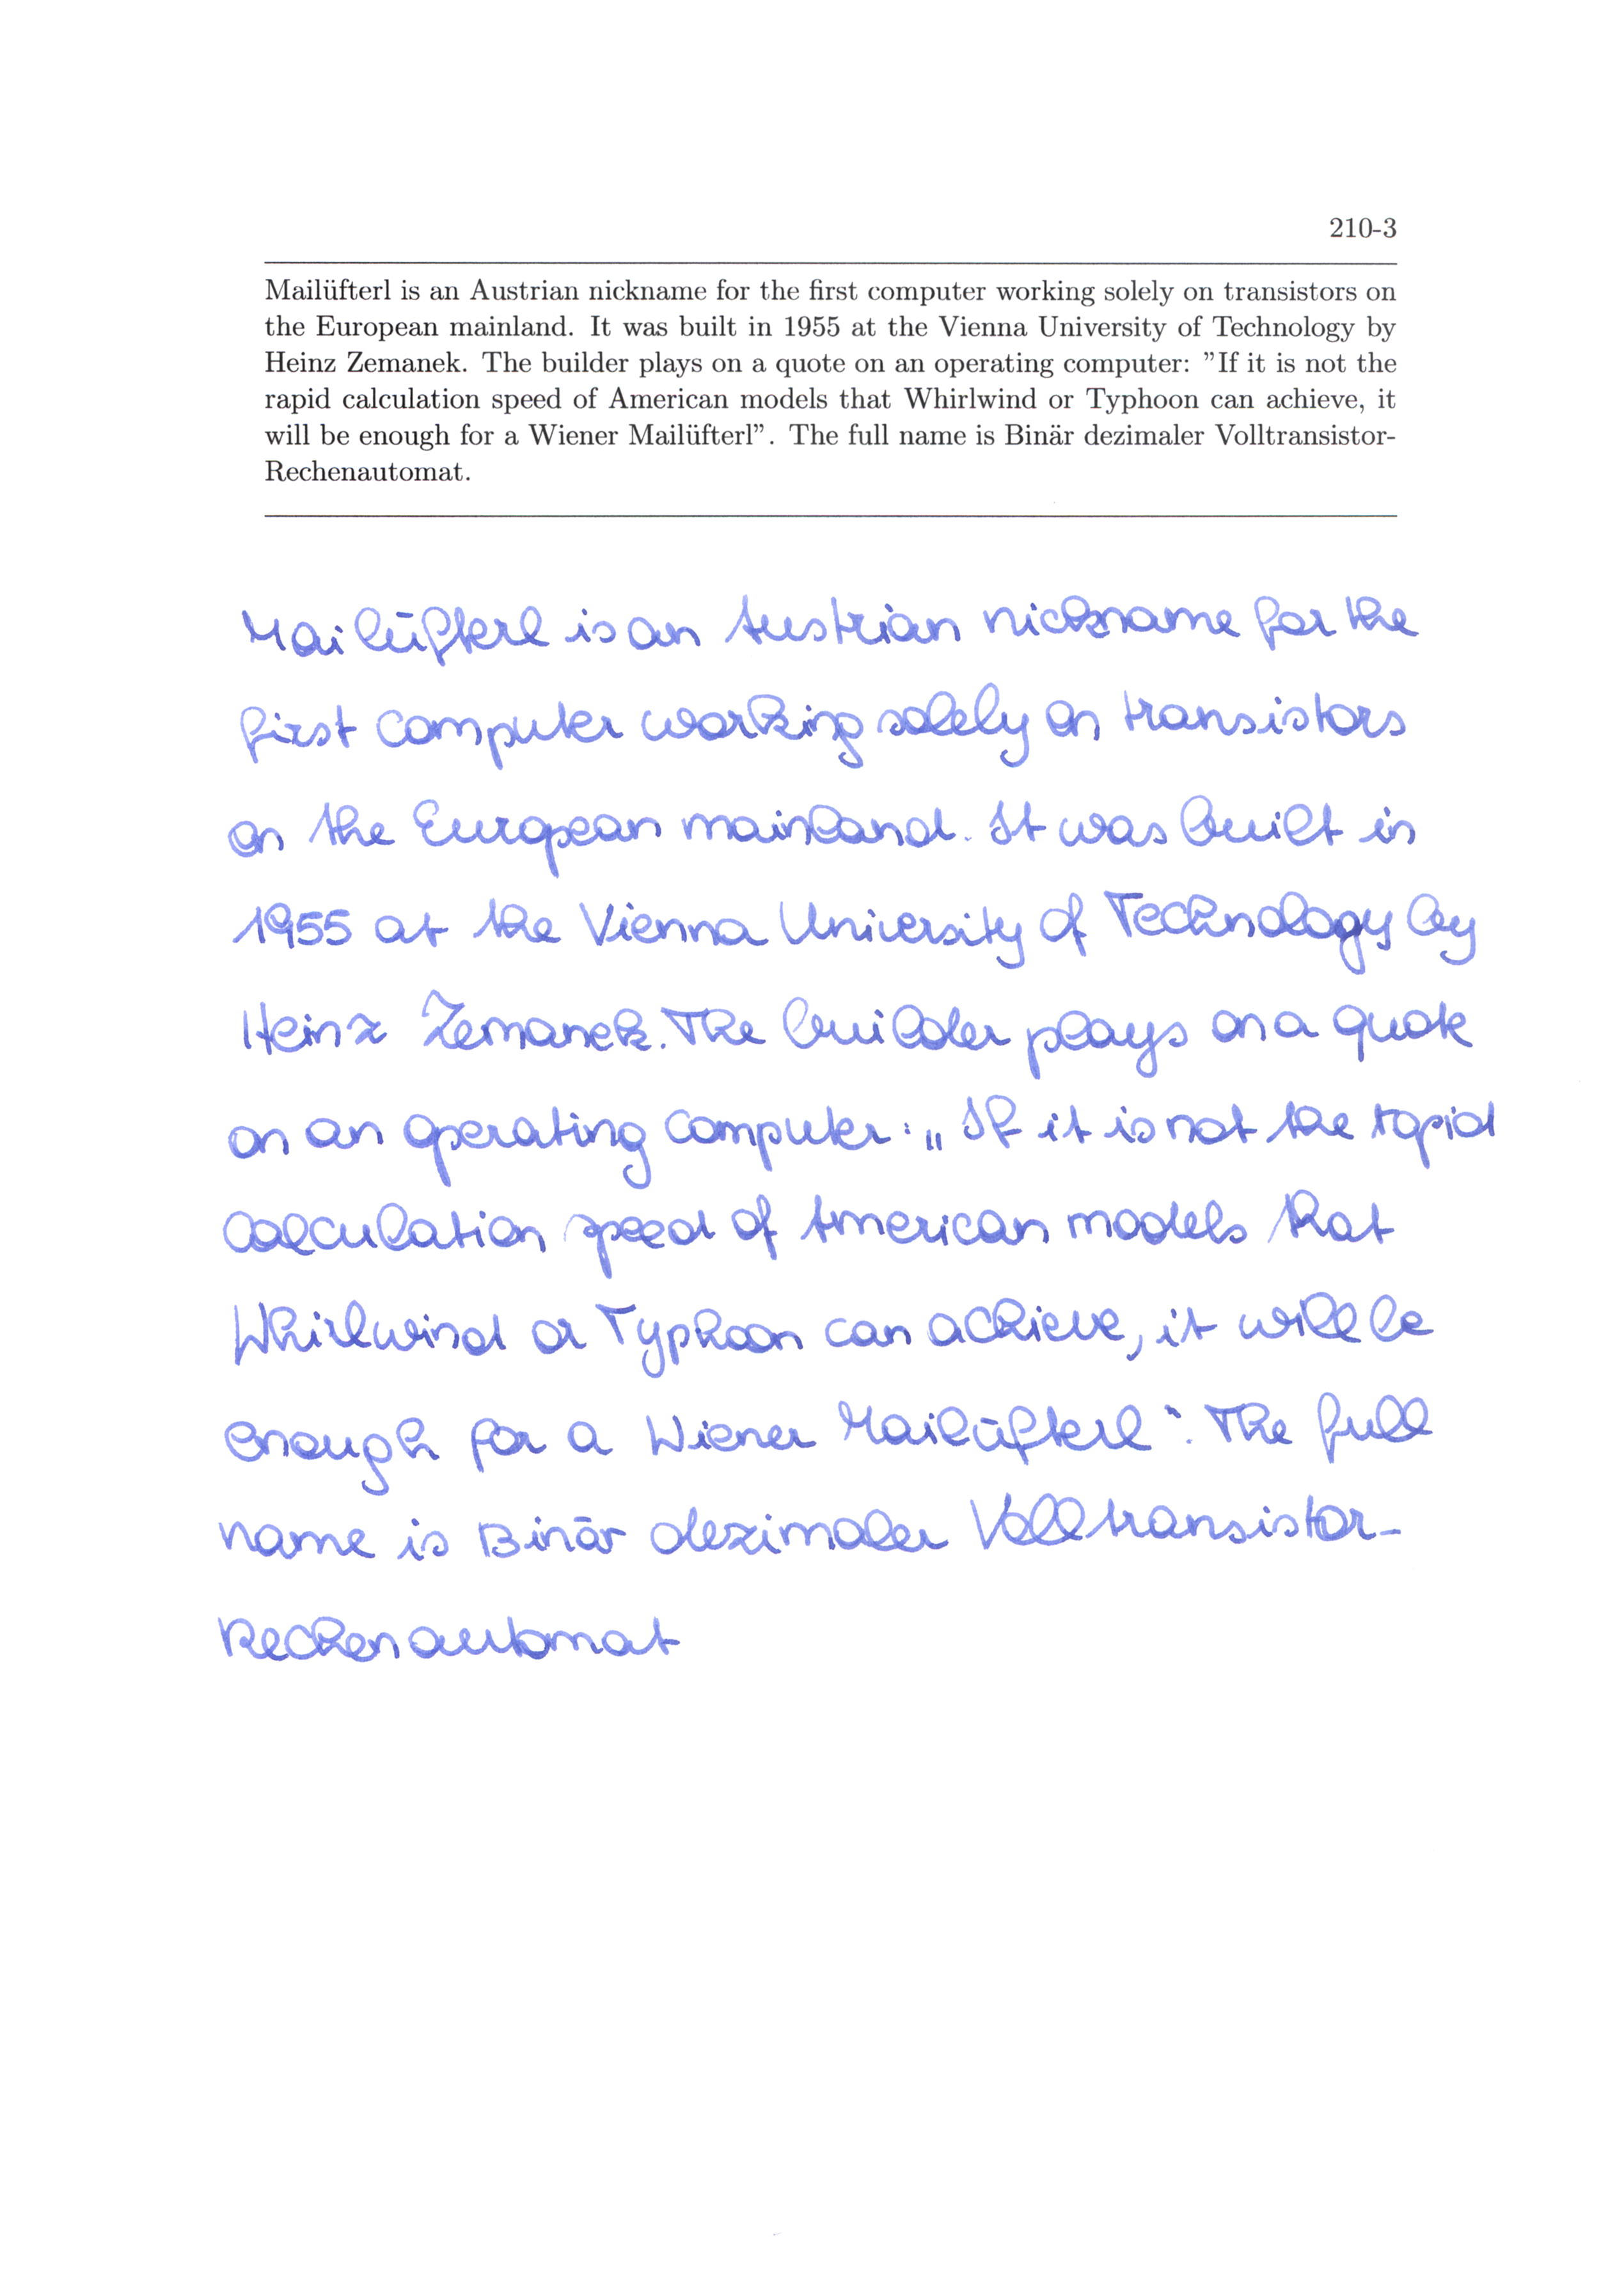 210-3
Mailüfterl is an Austrian nickname for the first computer working solely on transistors on
the European mainland. It was built in 1955 at the Vienna University of Technology by
Heinz Zemanek. The builder plays on a quote on an operating computer: ”If it is not the
rapid calculation speed of American models that Whirlwind or Typhoon can achieve, it
will be enough for a Wiener Mailüfterl”. The full name is Binär dezimaler Volltransistor-
Rechenautomat.
Mailüfterl is an Austrian nickname for the
first computer working solely on transistors
on the European mainland. It was built in
1955 at the Vienna University of Technology by
Heinz Zemanek. The builder plays on a quote
on an operating computer: „If it is not the rapid
calculation speed of American models that
Whirlwind or Typhoon can achieve, it will be
enough for a Wiener Mailüfterl“. The full
name is Binär dezimaler Volltransistor-
Rechenautomat